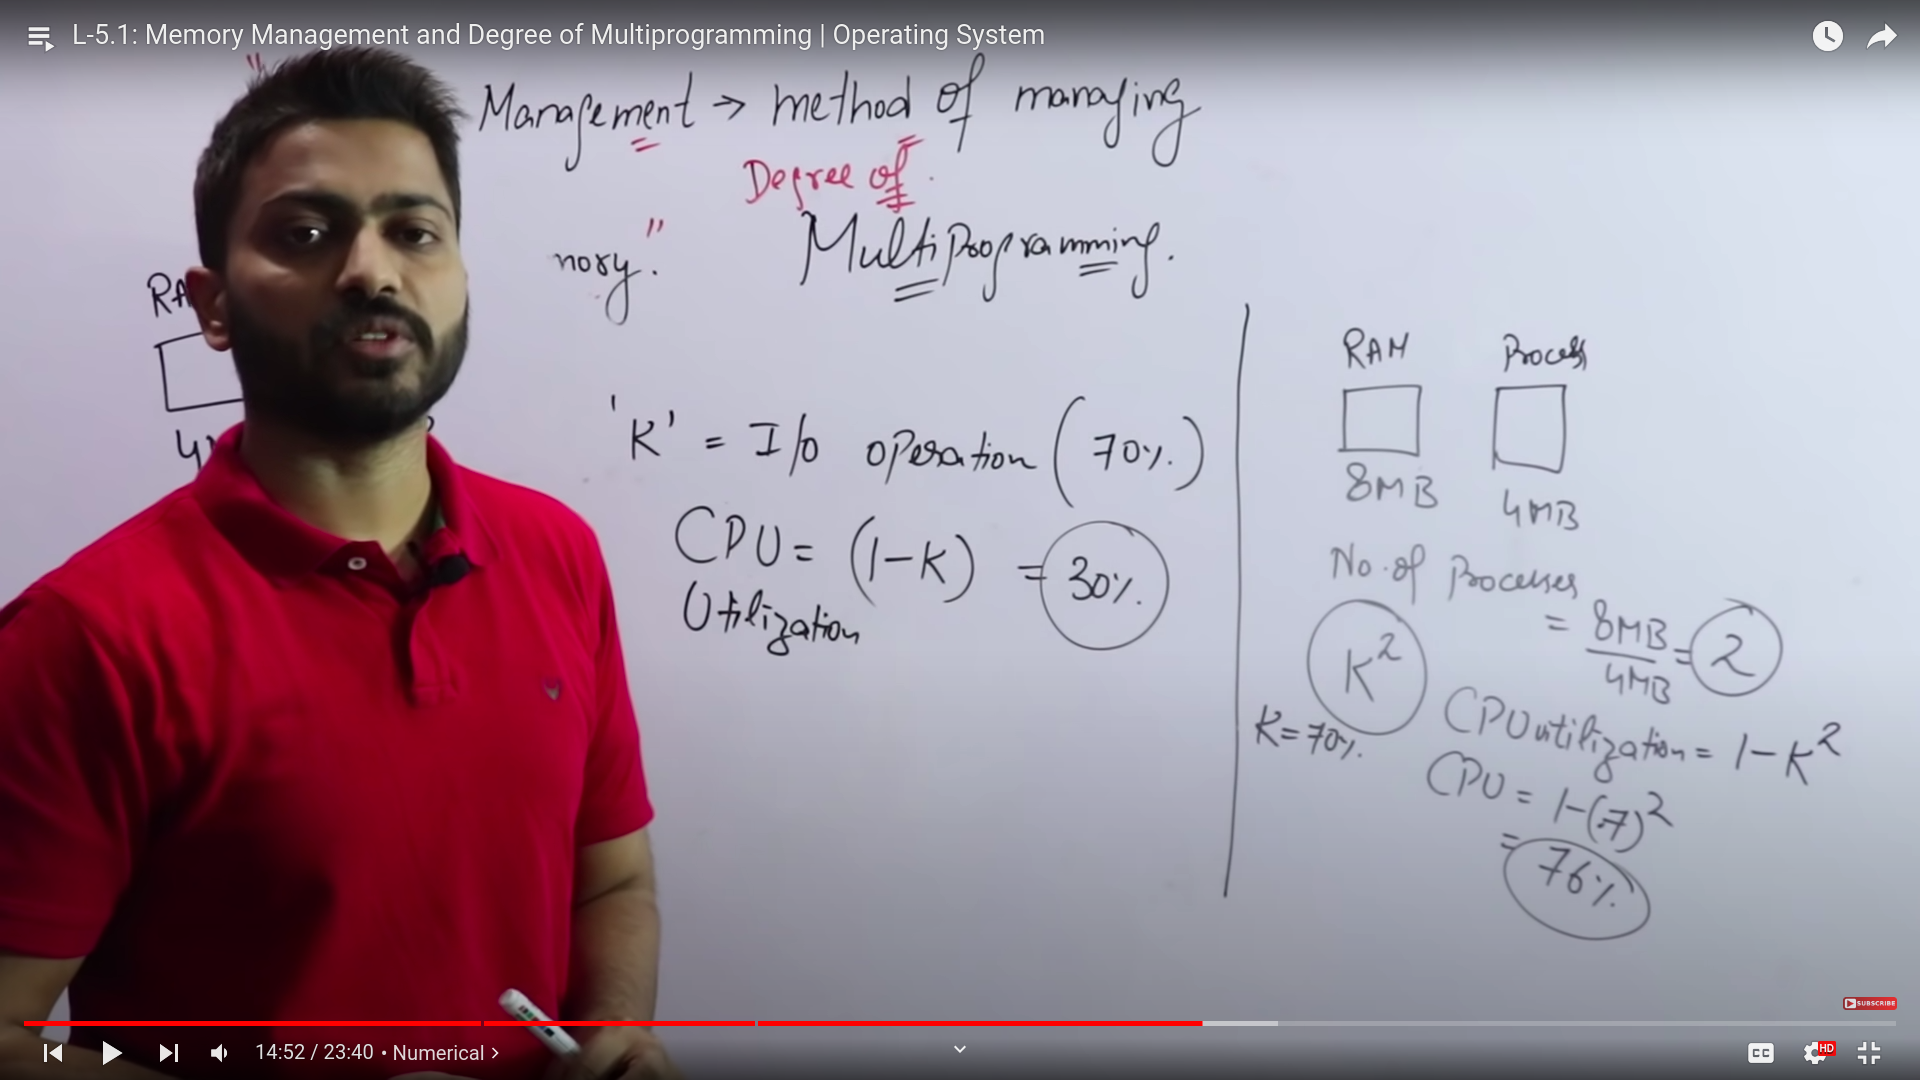 L-5.1: Memory Management and Degree of Multiprogramming | Operating System
"
Management → method of managing
Degree of
nory." Multiprogramming.
RA
4
'K' = I/o operation (70%)
CPU = (1-K) = 30%.
Utilization
RAM Process
8MB 4MB
No. of Processes
= 8MB/4MB = 2
K²
K=70%.
CPU utilization = 1-K²
CPU = 1-(.7)²
= 76%.
SUBSCRIBE
14:52 / 23:40 • Numerical >
CC HD